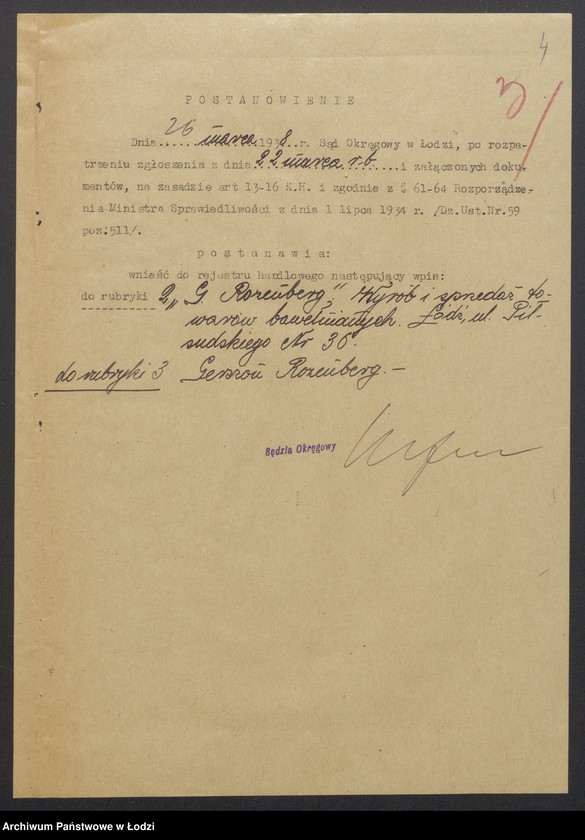 4
P O S T A N O W I E N I E
Dnia 26 marca 1938 r. Sąd Okręgowy w Łodzi, po rozpa-
trzeniu zgłoszenia z dnia 22 marca r.b. i załączonych doku-
mentów, na zasadzie art 13-16 K.H. i zgodnie z § 61-64 Rozporządze-
nia Ministra Sprawiedliwości z dnia 1 lipca 1934 r. /Dz.Ust.Nr.59
poz.511/.
p o s t a n a w i a :
wnieść do rejestru handlowego następujący wpis:
do rubryki 2 „G Rozenberg", Wyrób i sprzedaż to-
warów bawełnianych. Łódź, ul. Pił-
sudskiego Nr 36.
do rubryki 3 Gerszon Rozenberg. —
Sędzia Okręgowy
Archiwum Państwowe w Łodzi